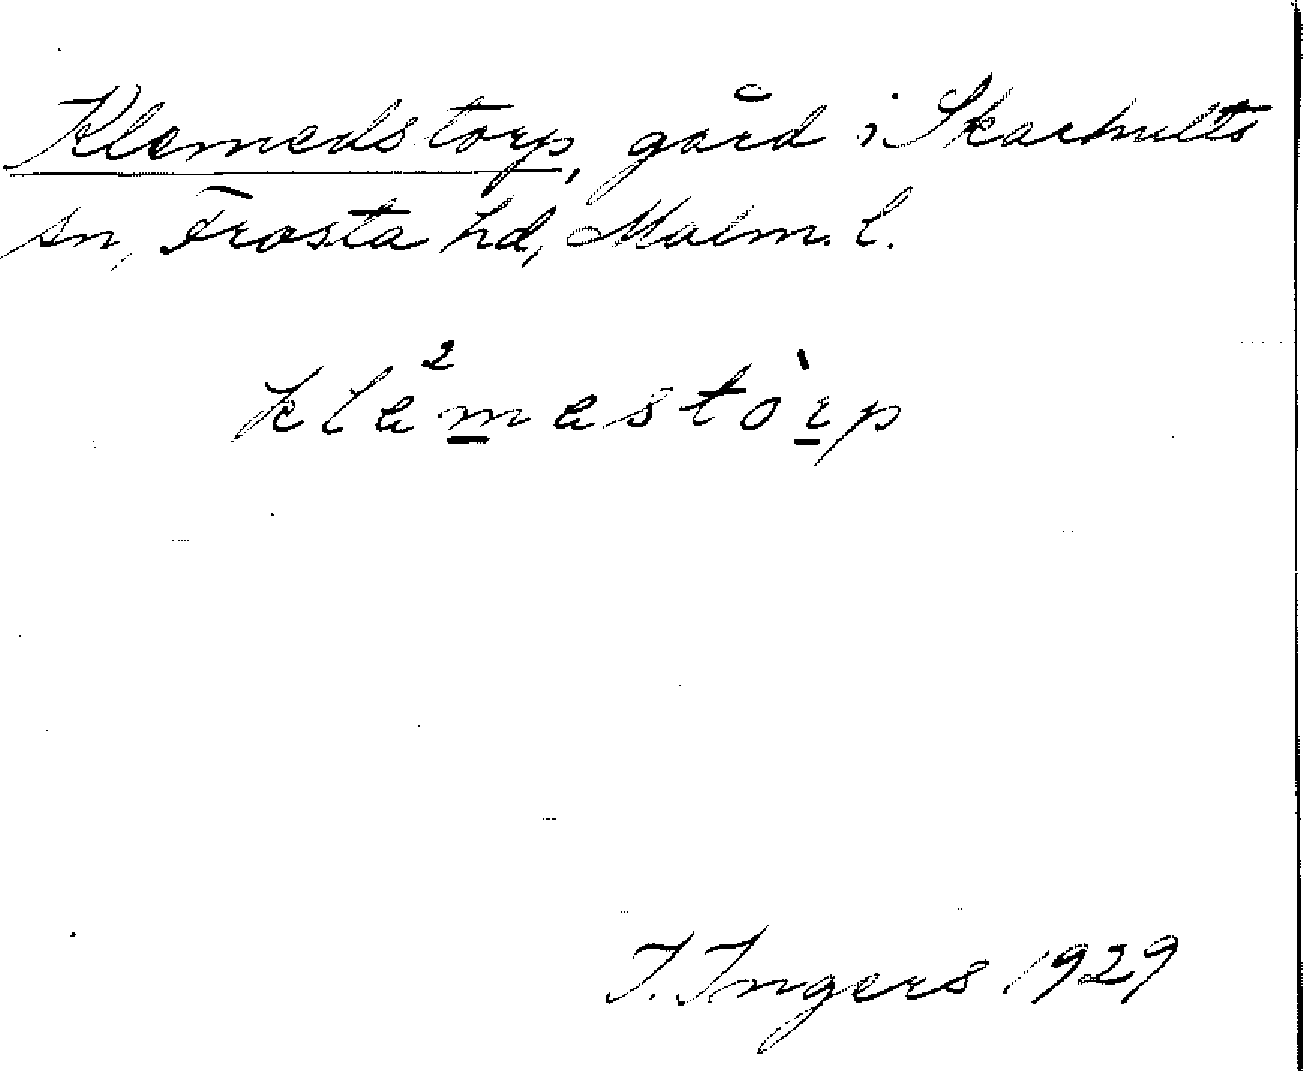 Klemedstorp, gård i Skarhults
sn, Frosta hd, Malm. l.
kle²mestòrp
I. Ingers 1929